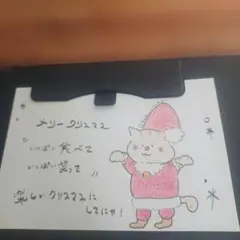 メリークリスマス
いっぱい食べて
いっぱい笑って
楽しいクリスマスに
してにゃ！